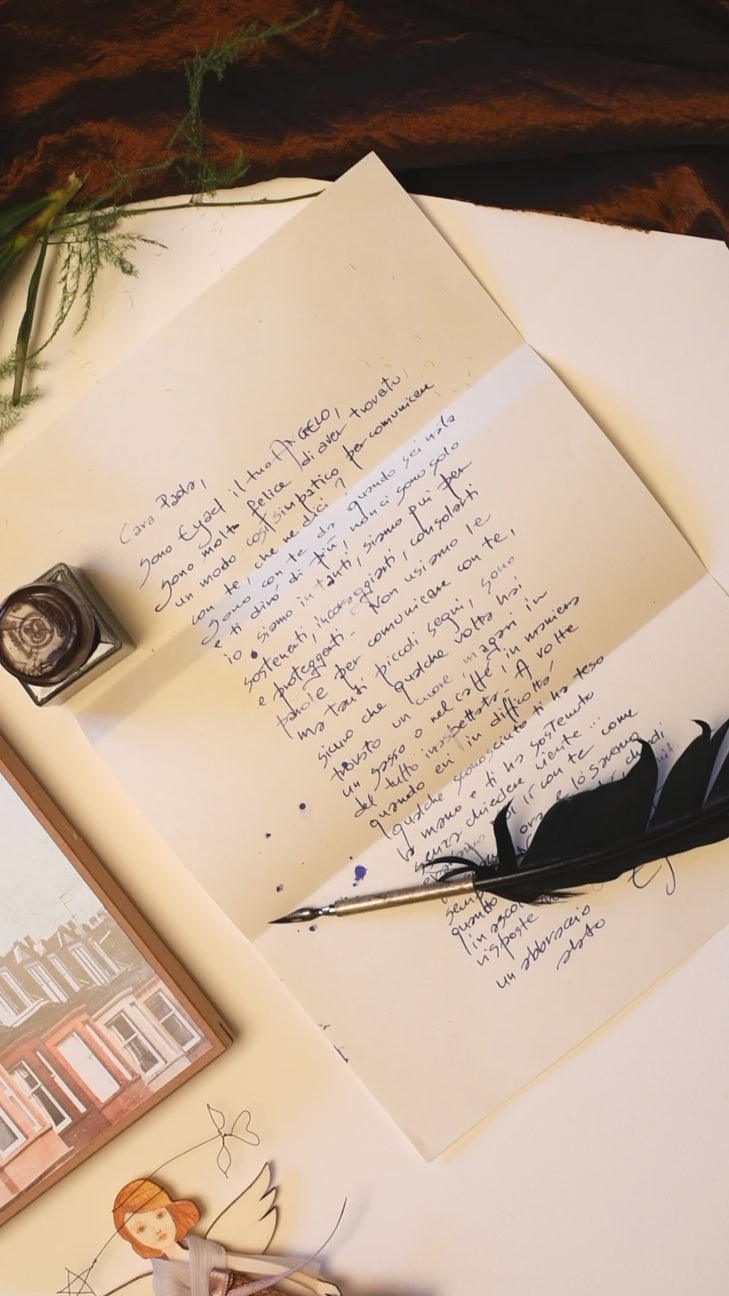 Cara Paola,
sono Eyael il tuo ANGELO,
sono molto felice di aver trovato
un modo così simpatico per comunicare
con te, che ne dici?
Sono con te da quando sei nata
e ti dirò di più, non ci sono solo
io siamo in tanti, siamo qui per
sostenerti, incoraggianti, consolarti
e proteggerti. Non usiamo le
parole per comunicare con te,
ma tanti piccoli segni, sono
sicuro che qualche volta hai
trovato un cuore magari in
un sasso o nel caffè in maniera
del tutto inaspettata. A volte
quando eri in difficoltà
qualche sconosciuto ti ha teso
la mano e ti ha sostenuto
senza chiedere niente...
lì con te come
ora e lo saremo
quando
in
risposte
un abbraccio
alato
Ey